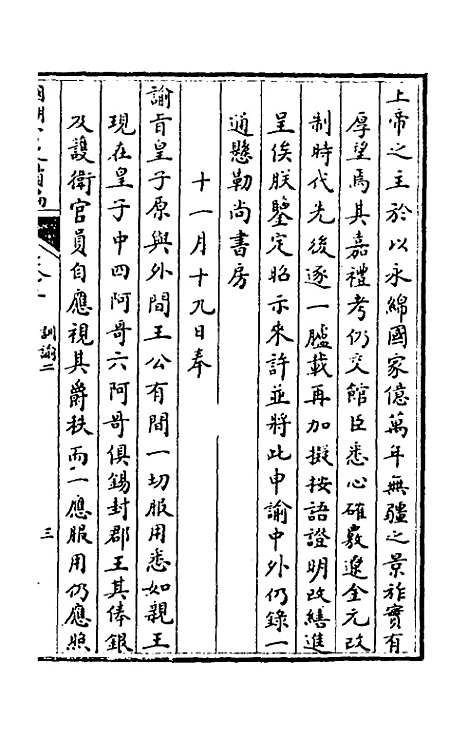 上帝之主於以永綿國家億萬年無疆之景祚實有
厚望焉其嘉禮考仍交館臣悉心確覈遼金元改
制時代先後逐一臚載再加擬按語證明改繕進
呈俟朕鑒定昭示來許並將此申諭中外仍錄一
通懸勒尚書房
十一月十九日奉
諭旨皇子原與外間王公有間一切服用悉如親王
現在皇子中四阿哥六阿哥俱錫封郡王其俸銀
及護衛官員自應視其爵秩而一應服用仍應照
訓諭二
三